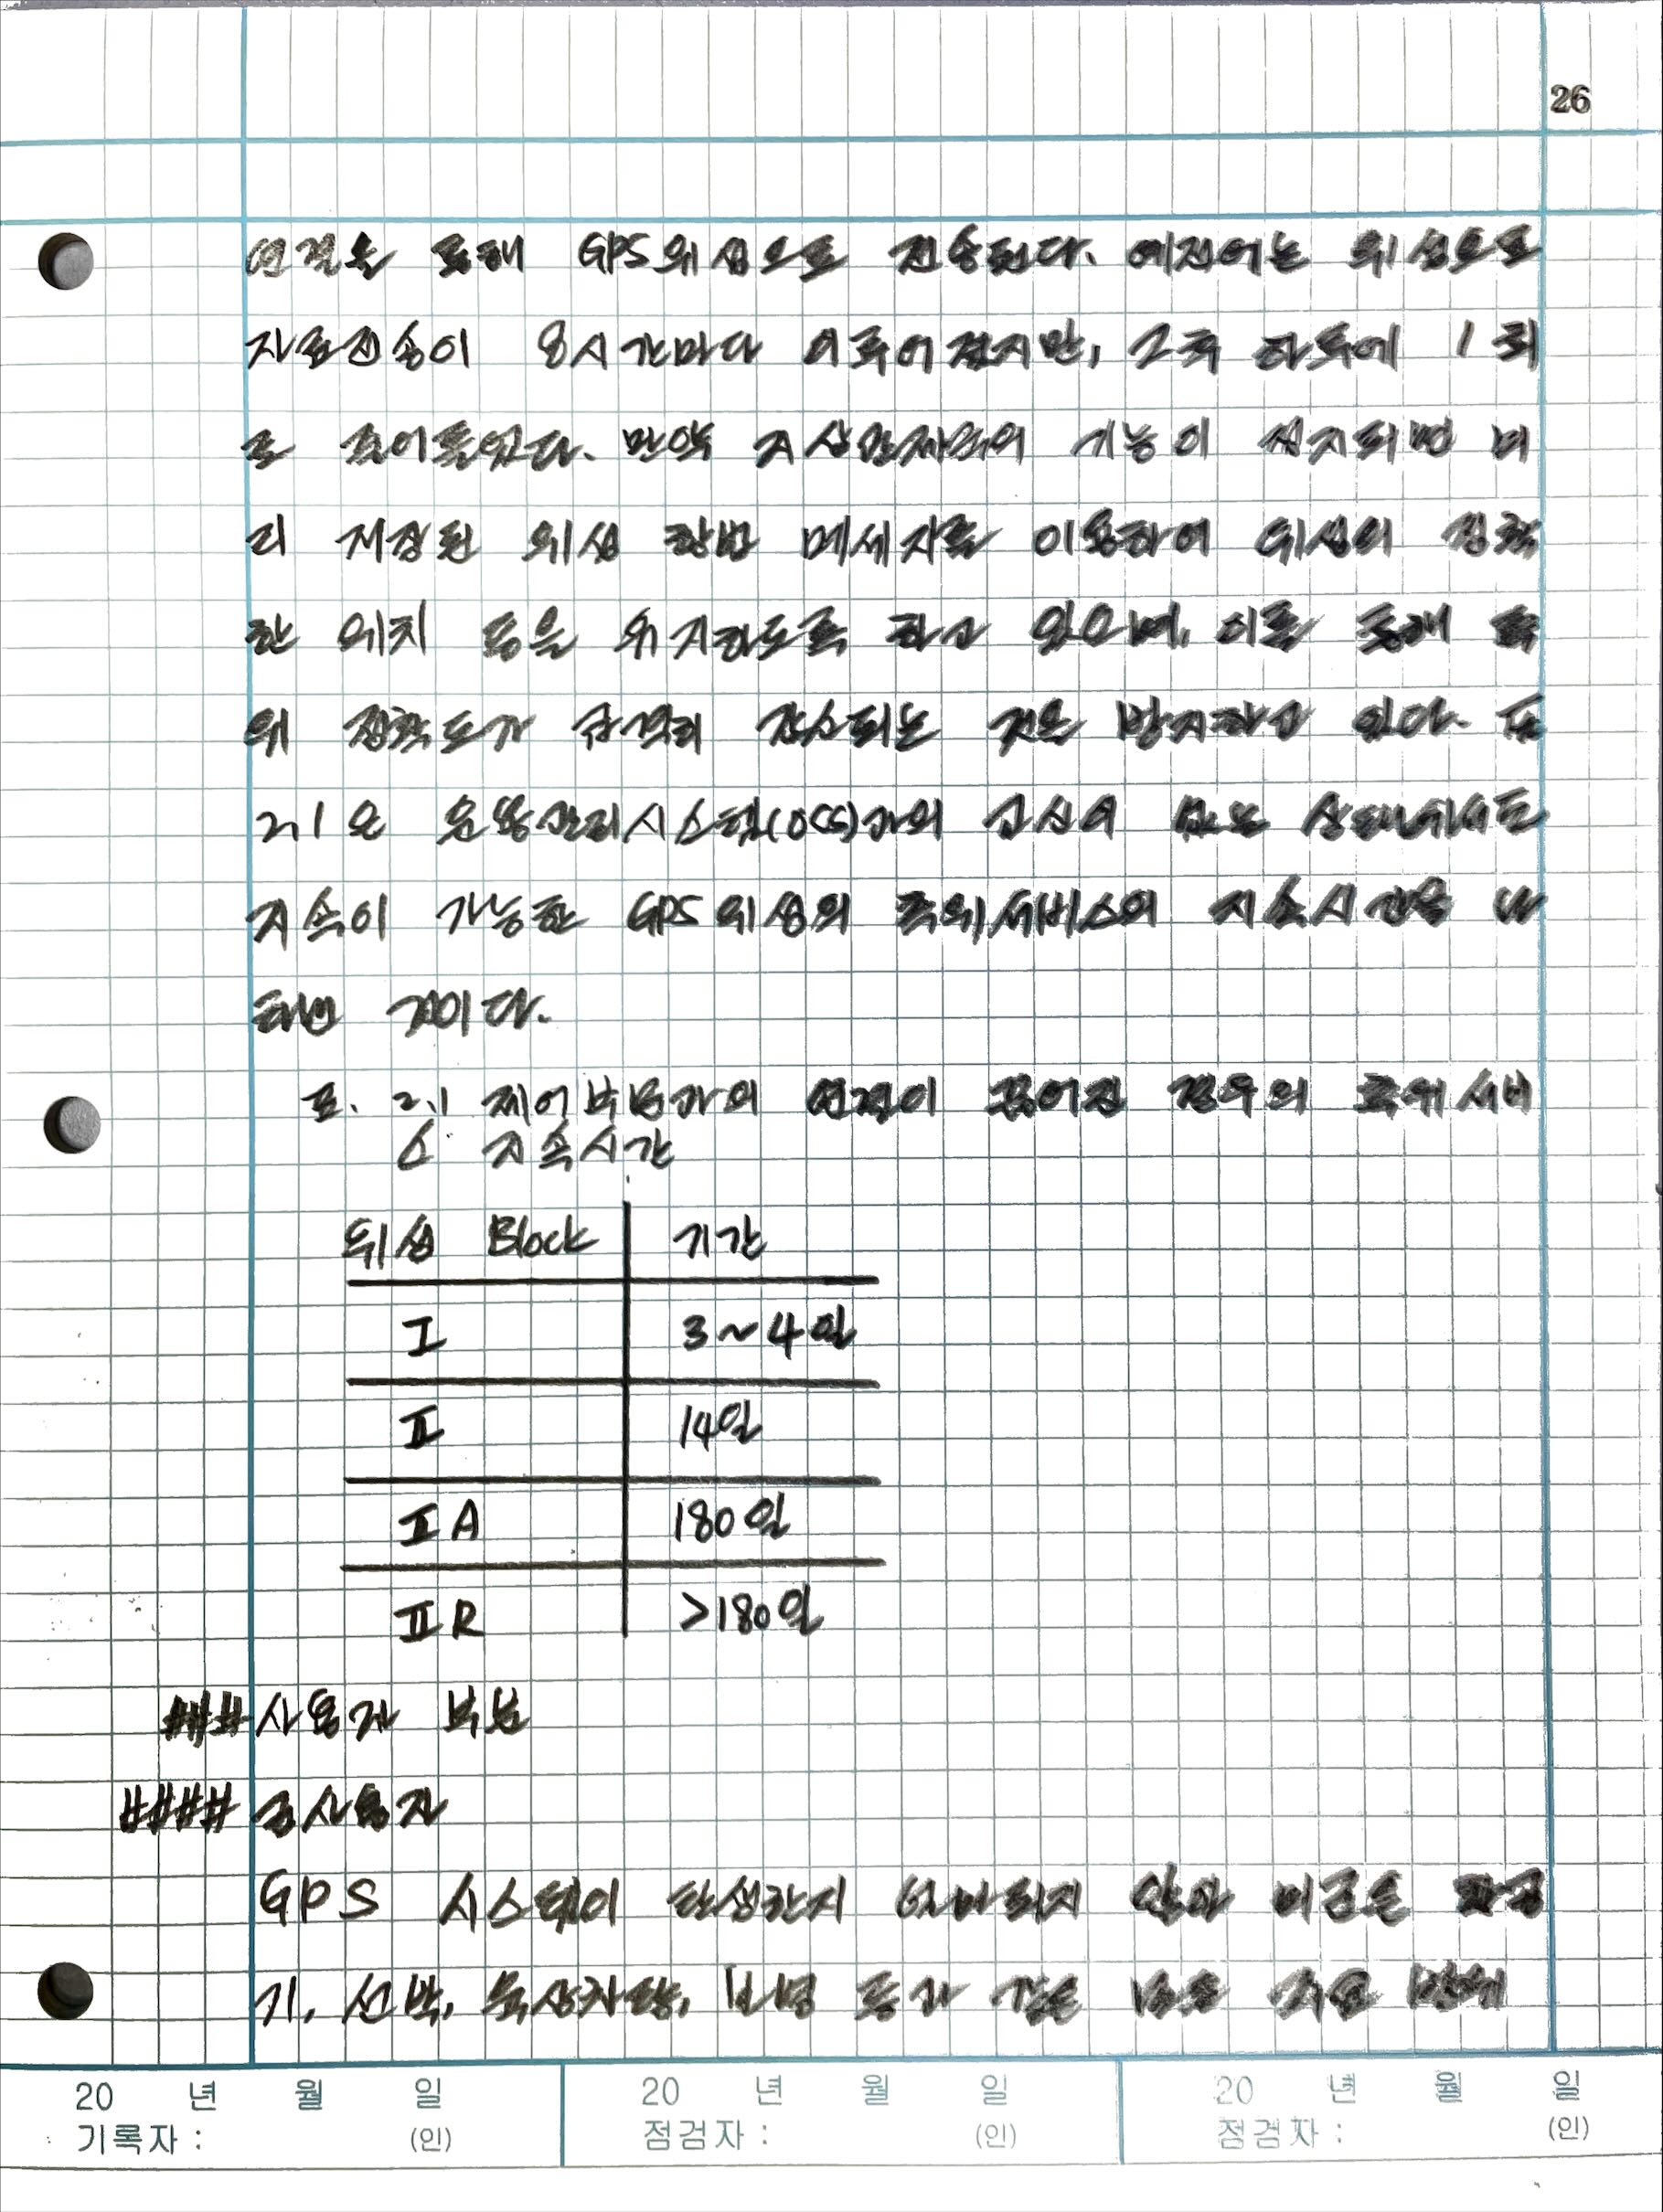 26
연결을 통해 GPS위성으로 전송된다. 예전에는 위성으로
자료전송이 8시간마다 이루어졌지만, 그후 하루에 1회
로 줄어들었다. 만약 지상관제국의 기능이 정지되면 미
리 저장된 위성 항법 메세지를 이용하여 위성의 정확
한 위치 등을 유지하도록 하고 있으며, 이를 통해 측
위 정확도가 급격히 감소되는 것을 방지하고 있다. 표
2.1은 운용관리시스템(OCS)과의 교신이 없는 상태에서도
지속이 가능한 GPS위성의 측위서비스의 지속시간을 나
타낸 것이다.
표. 2.1 제어부분과의 연결이 끊어진 경우의 측위서비
스 지속시간
위성 Block 기간
I 3~4일
II 14일
IIA 180일
IIR >180일
### 사용자 부분
#### 군사용자
GPS 시스템이 탄생한지 얼마되지 않아 미군은 항공
기, 선박, 육상차량, 병 등과 같은 군용 주요 방에
20 년 월 일 20 년 월 일 20 년 월 일
기록자 : (인) 점검자 : (인) 점검자 : (인)